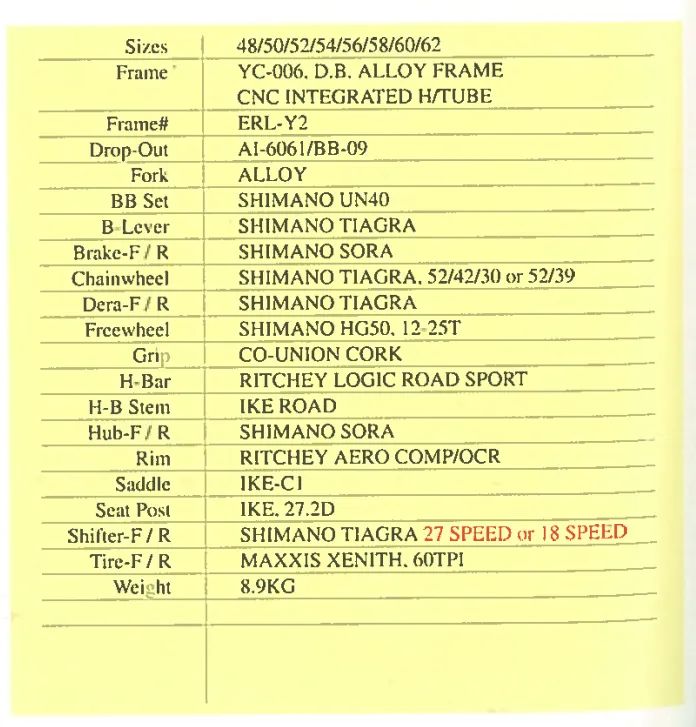 Sizes 48/50/52/54/56/58/60/62
Frame YC-006, D.B. ALLOY FRAME
CNC INTEGRATED H/TUBE
Frame# ERL-Y2
Drop-Out AI-6061/BB-09
Fork ALLOY
BB Set SHIMANO UN40
B-Lever SHIMANO TIAGRA
Brake-F / R SHIMANO SORA
Chainwheel SHIMANO TIAGRA, 52/42/30 or 52/39
Dera-F / R SHIMANO TIAGRA
Freewheel SHIMANO HG50, 12-25T
Grip CO-UNION CORK
H-Bar RITCHEY LOGIC ROAD SPORT
H-B Stem IKE ROAD
Hub-F / R SHIMANO SORA
Rim RITCHEY AERO COMP/OCR
Saddle IKE-C1
Seat Post IKE, 27.2D
Shifter-F / R SHIMANO TIAGRA 27 SPEED or 18 SPEED
Tire-F / R MAXXIS XENITH, 60TPI
Weight 8.9KG